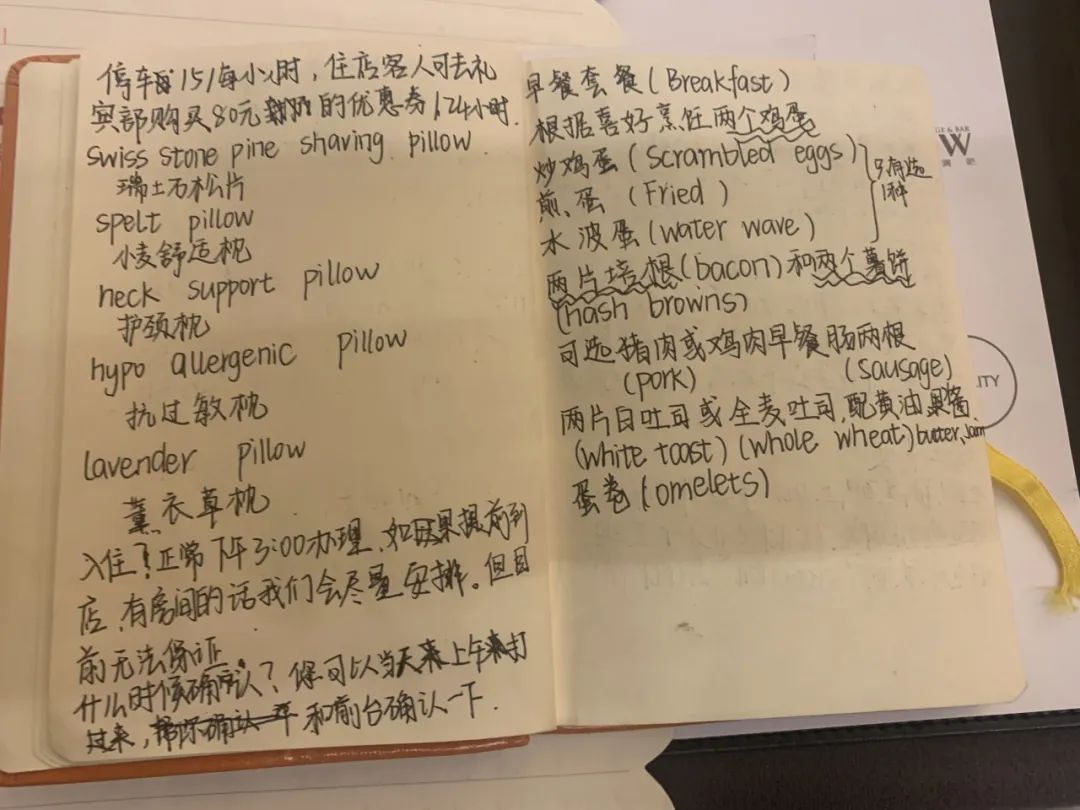 停车 15/每小时，住店客人可去礼
宾部购买80元 的优惠券/24小时.
swiss stone pine shaving pillow
瑞士石松片
spelt pillow
小麦舒适枕
neck support pillow
护颈枕
hypo allergenic pillow
抗过敏枕
lavender pillow
薰衣草枕
入住？正常下午3:00办理、如果提前到
店、有房间的话我们会尽量安排。但目
前无法保证.
什么时候确认？您可以当天上午来打
过来， 和前台确认一下.
早餐套餐(Breakfast)
根据喜好烹饪两个鸡蛋
炒鸡蛋(Scrambled eggs)
煎、蛋(Fried)
水波蛋(water wave)
只有选
1种
两片培根(bacon)和两个薯饼
(hash browns)
可选猪肉或鸡肉早餐肠两根
(pork) (sausage)
两片白吐司或全麦吐司,配黄油果酱.
(white toast) (whole wheat) butter、Jam
蛋卷(omelets)
GE & BAR
W
ITY